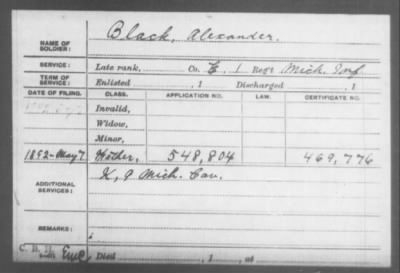 NAME OF SOLDIER: Black, Alexander.
SERVICE: Late rank, Co. E, 1 Reg't Mich. Inf
TERM OF SERVICE: Enlisted , 1 Discharged , 1
DATE OF FILING. CLASS. APPLICATION NO. LAW. CERTIFICATE NO.
Invalid,
Widow,
Minor,
1892-May 7 Mother, 548,804 469,776
ADDITIONAL SERVICES: K, 9 Mich. Cav.
REMARKS:
Died , 1 , at